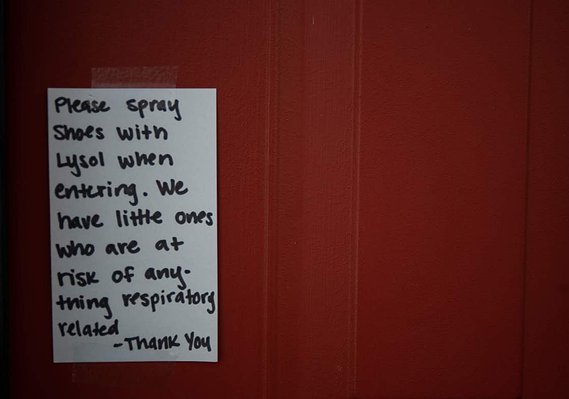 Please spray
Shoes with
Lysol when
entering. We
have little ones
who are at
risk of any-
thing respiratory
related
-Thank You